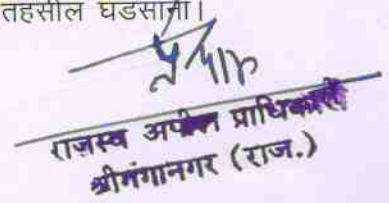 तहसील घडसाना।
राजस्व अपील प्राधिकारी
श्रीगंगानगर (राज.)